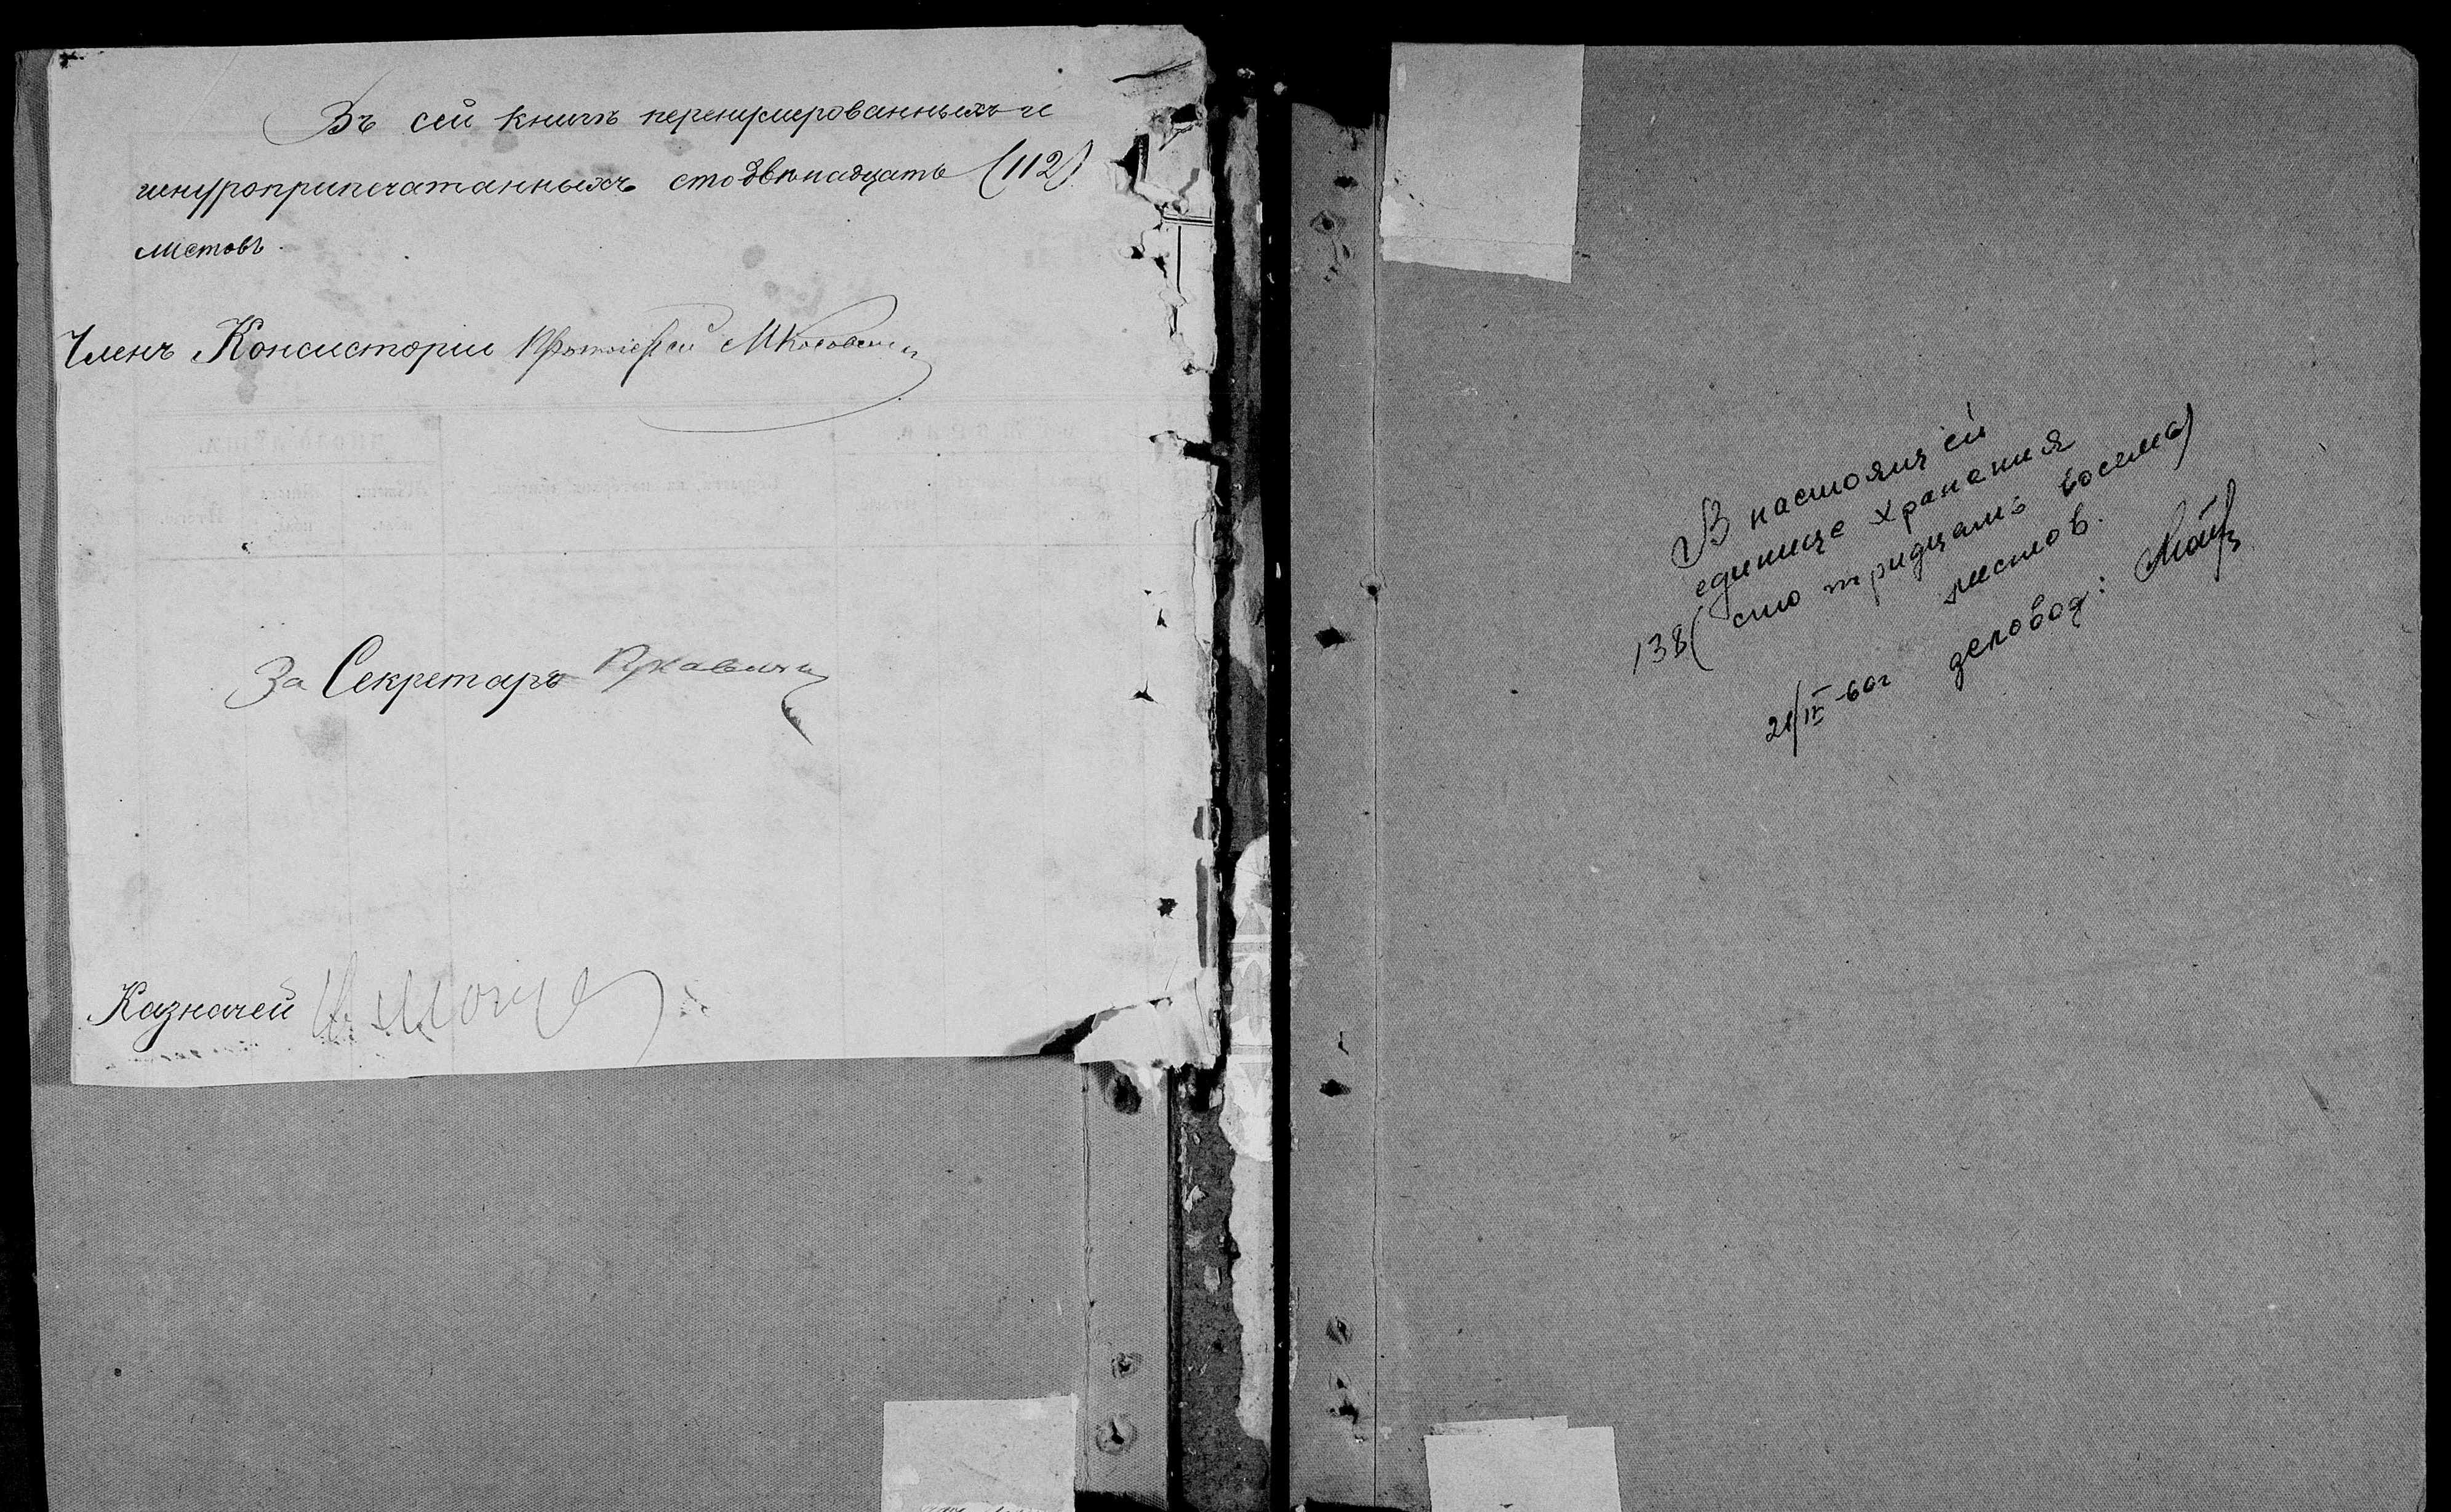 Въ сей книгѣ перенумерованныхъ и
шнуроприпечатанныхъ сто двѣнадцать (112)
листовъ.
Членъ Консисторіи Протоіерей
За Секретаря
Казначей
В настоящей
единице хранения
138 (сто тридцать восемь)
листов.
21/IV-60г деловод: